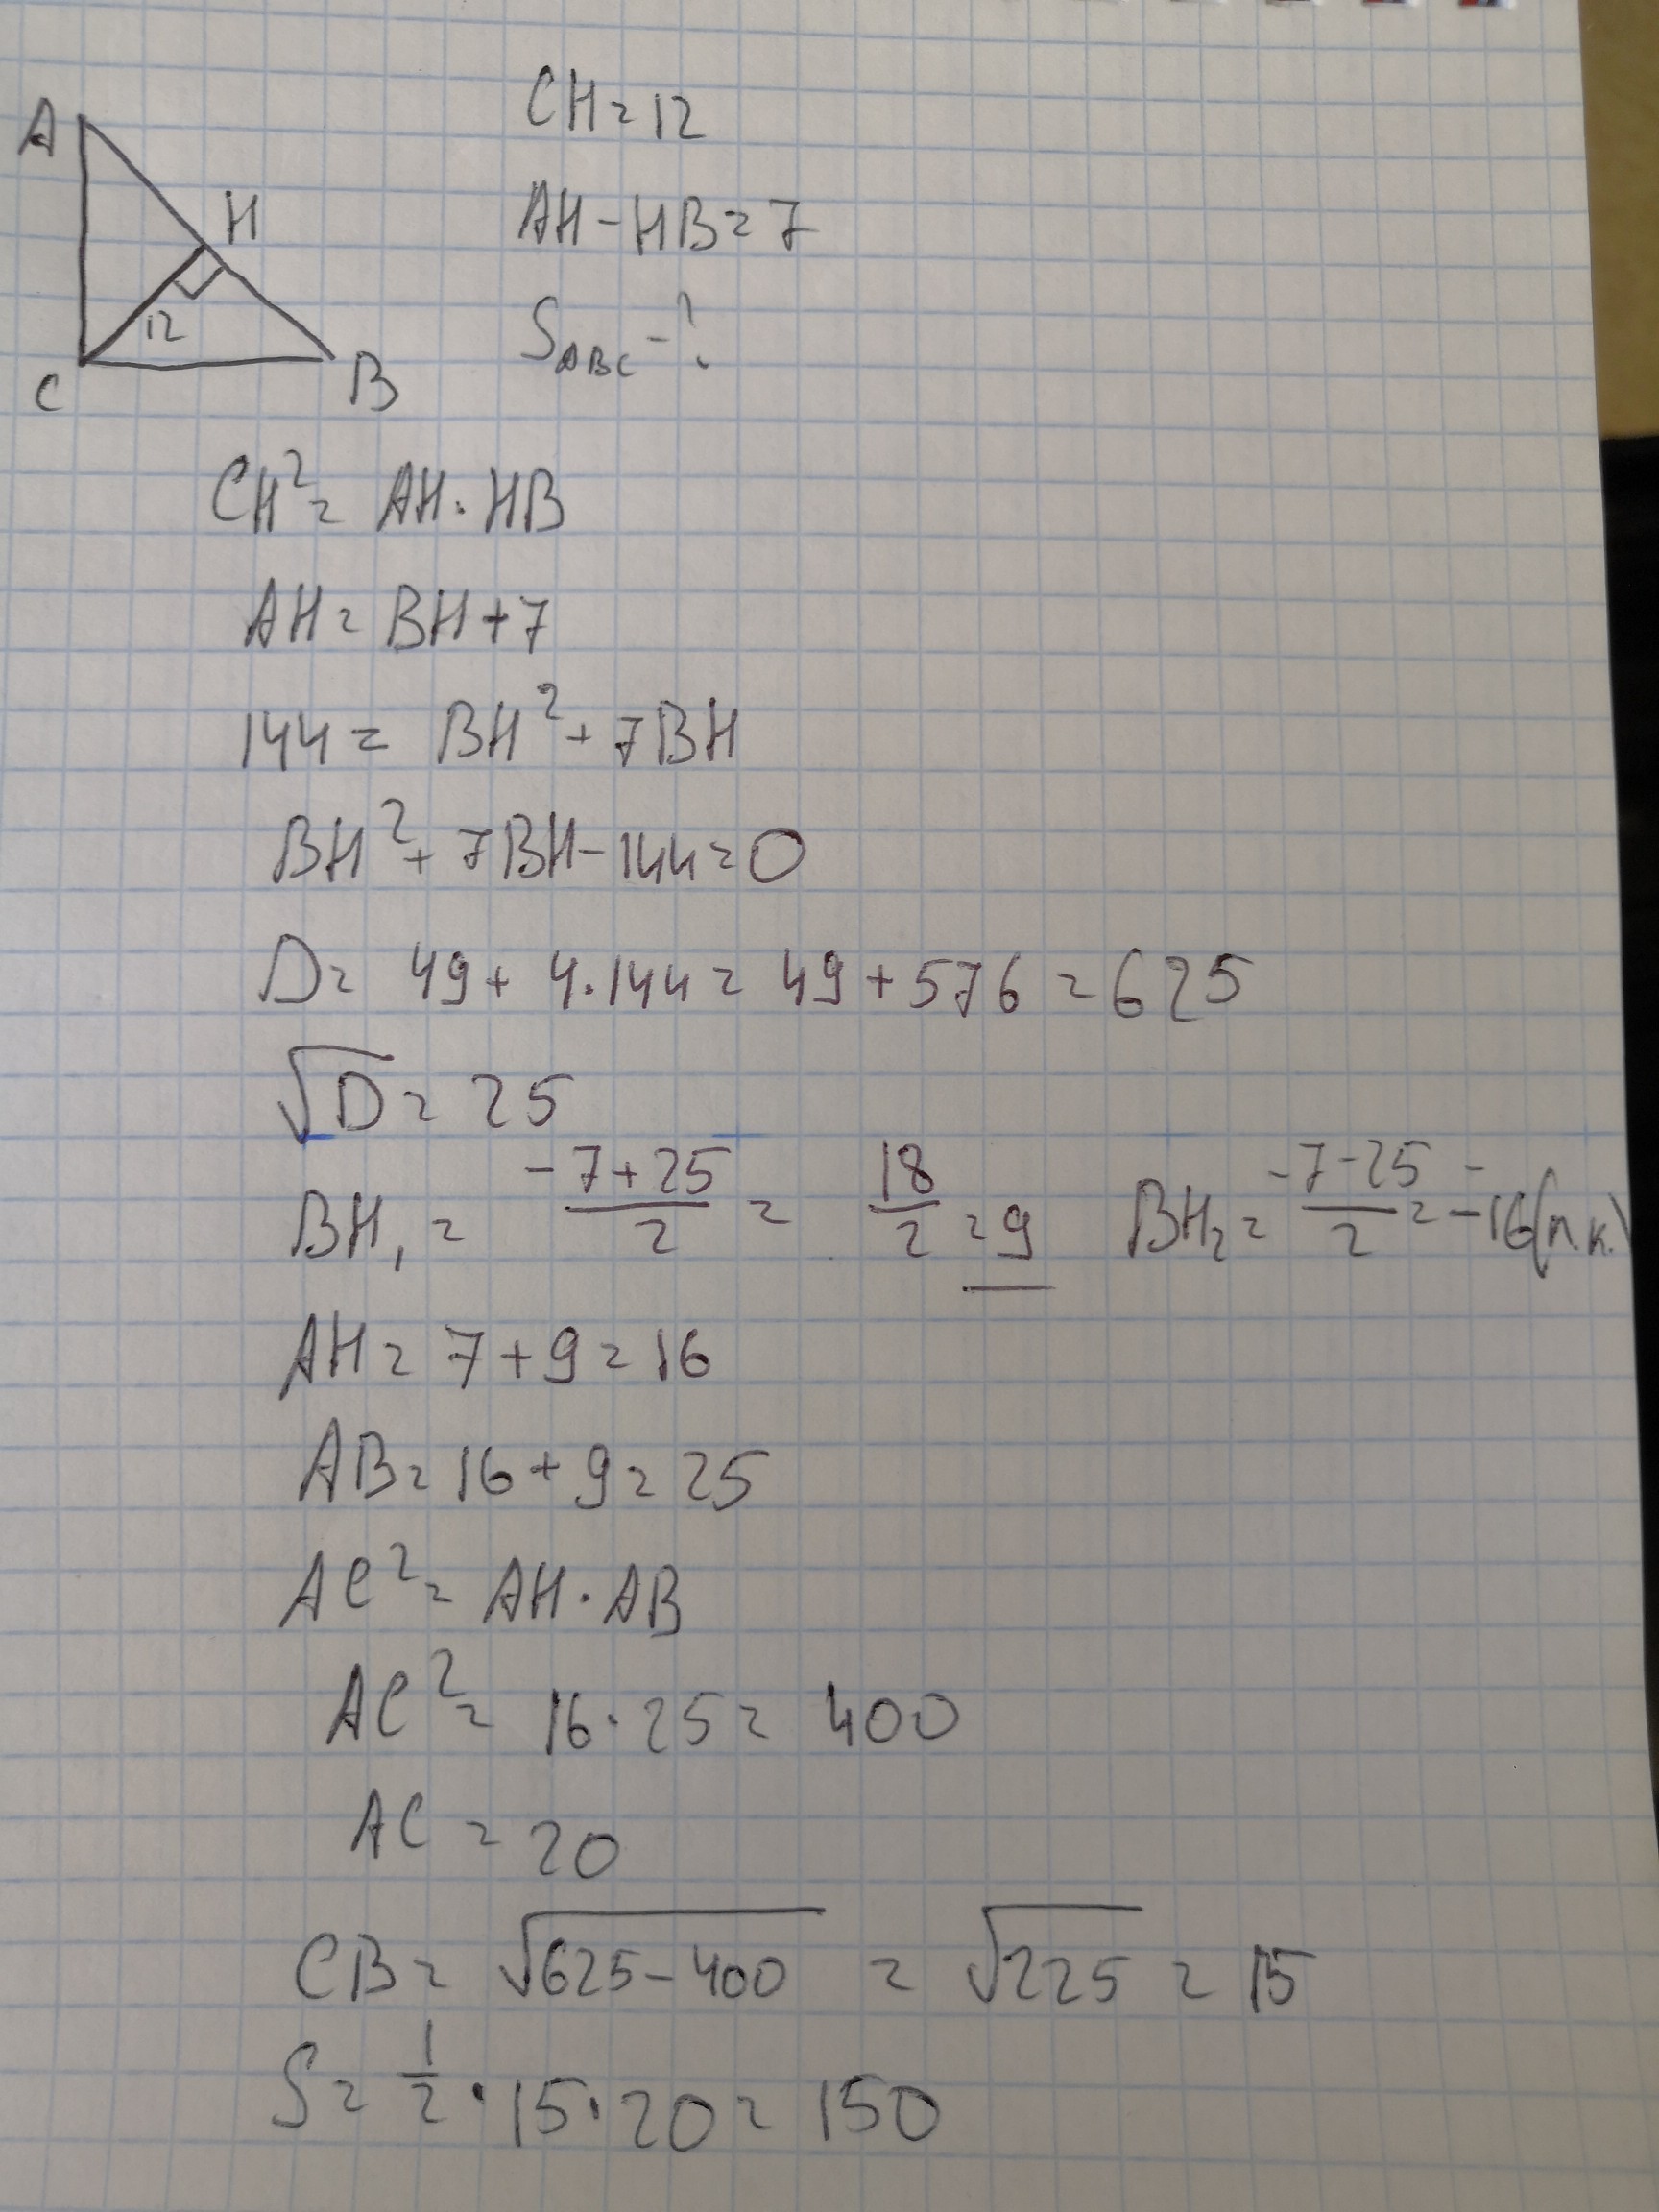 A
H
12
C
B
CH = 12
AH - HB = 7
S_ABC - ?
CH² = AH · HB
AH = BH + 7
144 = BH² + 7BH
BH² + 7BH - 144 = 0
D = 49 + 4 · 144 = 49 + 576 = 625
√D = 25
BH₁ = (-7 + 25)/2 = 18/2 = 9 BH₂ = (-7 - 25)/2 = -16 (п.к.)
AH = 7 + 9 = 16
AB = 16 + 9 = 25
AC² = AH · AB
AC² = 16 · 25 = 400
AC = 20
CB = √(625 - 400) = √225 = 15
S = 1/2 · 15 · 20 = 150